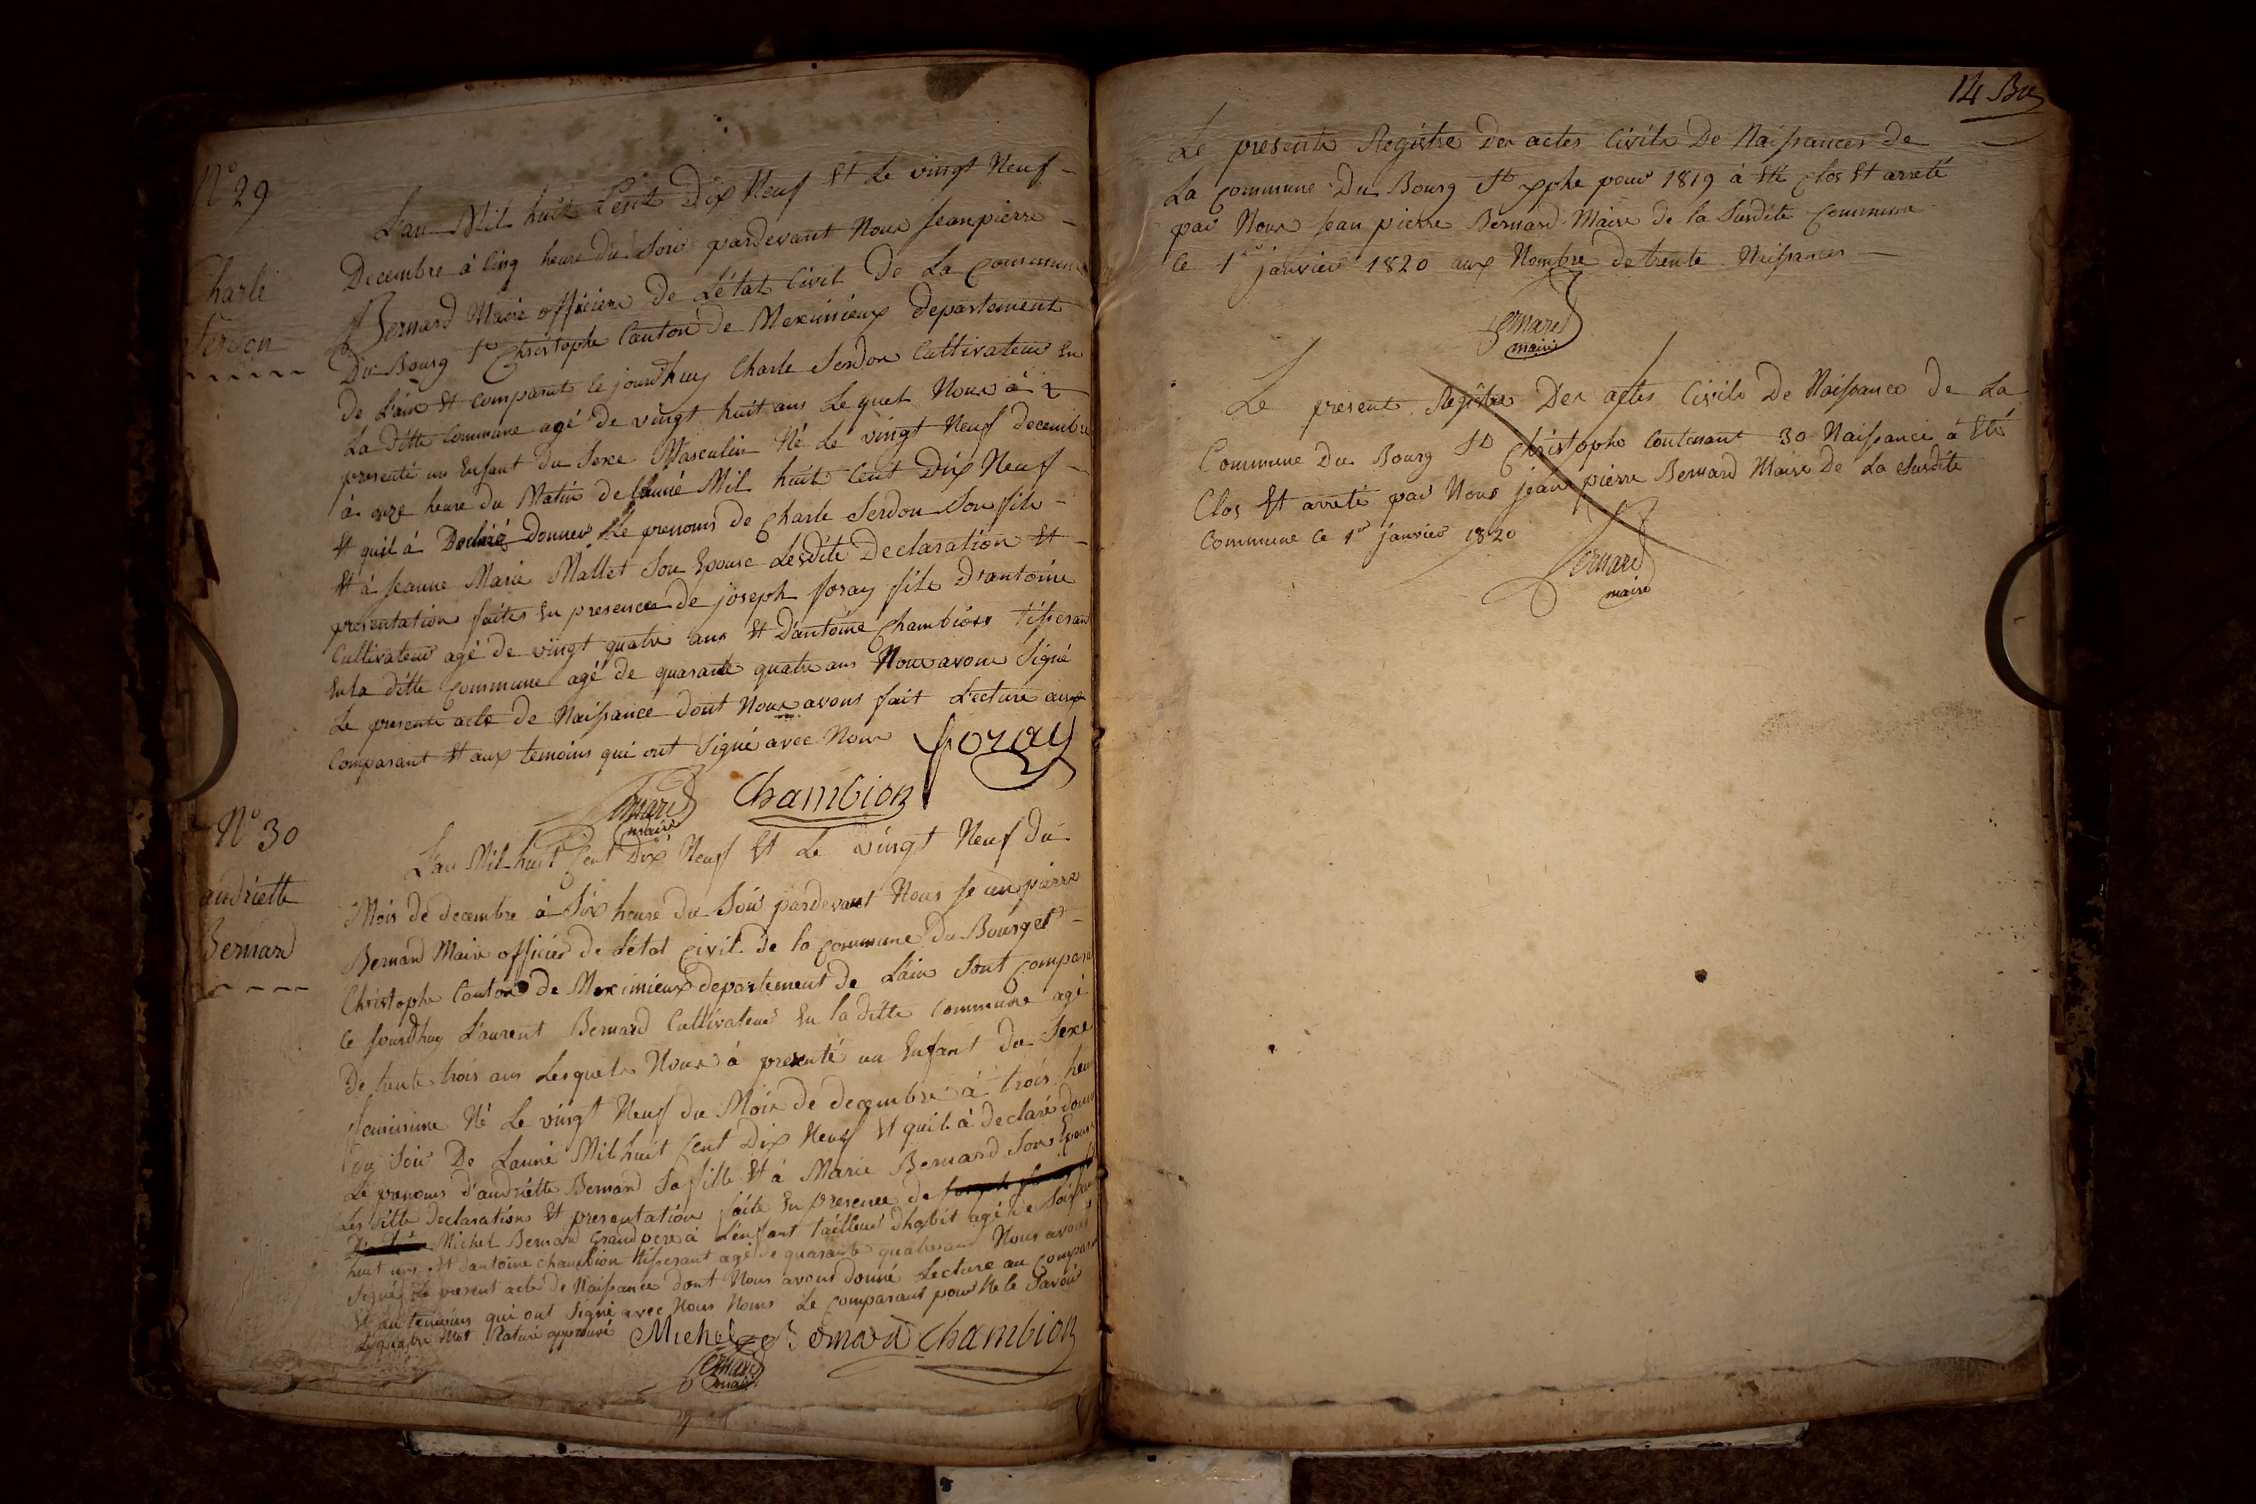 N° 29
Charle
Serdon
L'an Mil huit Cent Dix Neuf Et Le vingt Neuf
Decembre à Cinq heure du Soir pardevant Nous Jean pierre
Bernard Maire officiere de L'état Civil De La Commune
Du Bourg St Christophe Canton de Meximieux departement
de L'ain Et comparut ce jourd'huy Charle Serdon Cultivateur En
La ditte Commune agé de vingt huit ans Le quel Nous à
presenté un Enfant du Sexe Masculin Né Le vingt Neuf decembre
à onze heure du Matin de L'anné Mil huit Cent Dix Neuf
Et quil à Declaré Donner Le prenoms de Charle Serdon Son fils
Et à Jeanne Marie Mallet Son Epouse Lesdite Declaration Et
presentation faites En presence de joseph foray fils D'antoine
Cultivateur agé de vingt quatre ans Et D'antoine Chambion tisseran
En la ditte Commune agé de quarante quatre ans Nous avons Signé
Le presente acte de Naissance dont Nous avons fait Lecture aux
Comparant Et aux temoins qui ont Signé avec Nous foray
Bernard Chambion
maire
N° 30
andriette
Bernard
L'an Mil huit Cent Dix Neuf Et Le vingt Neuf Du
Mois de decembre à Six heure du Soir pardevant Nous Jean pierre
Bernard Maire officier de L'état Civil de la Commune Du Bourg St
Christophe Canton de Meximieux departement de L'ain Sont Compara
Ce Jourdhuy Laurent Bernard Cultivateur En la ditte Commune agé
De trente trois ans Lesquels Nous à presenté un Enfant Du Sexe
feminime Né Le vingt Neuf du Mois de decembre à trois heu
du Soir De L'anné Mil huit Cent Dix Neuf Et quil à declaré donn
Le prenoms d'andriette Bernard Sa fille Et à Marie Bernard Son Epouse
Les ditte Declaration Et presentation faite En presence de
Michel Bernard Grand pere à L'enfant tailleur d'habit agé de Soixan
huit ans Et d'antoine chambion tisserant agé de quarante quatre ans Nous avons
Signé Le present acte de Naissance dont Nous avons donné Lecture au Compara
Et au temoins qui ont Signé avec Nous Nomé Le Comparant pour Ne le Savoir
Le quatre Mot Raturé approuvé Michel Bernard Chambion
Bernard
maire
14 Bd
Le presente Registre des actes Civils De Naissances de
La Commune Du Bourg St xpphe pour 1819 à Eté Clos Et arreté
par Nous Jean pierre Bernard Maire de la Susdite Commune
Ce 1er janvier 1820 aux Nombre de trente Naissances
Bernard
maire
Le present Registre Des actes Civils De Naissance de La
Commune Du Bourg St Christophe Contenant 30 Naissance à Eté
Clos Et arreté par Nous jean pierre Bernard Maire De La Susdite
Commune Ce 1er janvier 1820
Bernard
maire